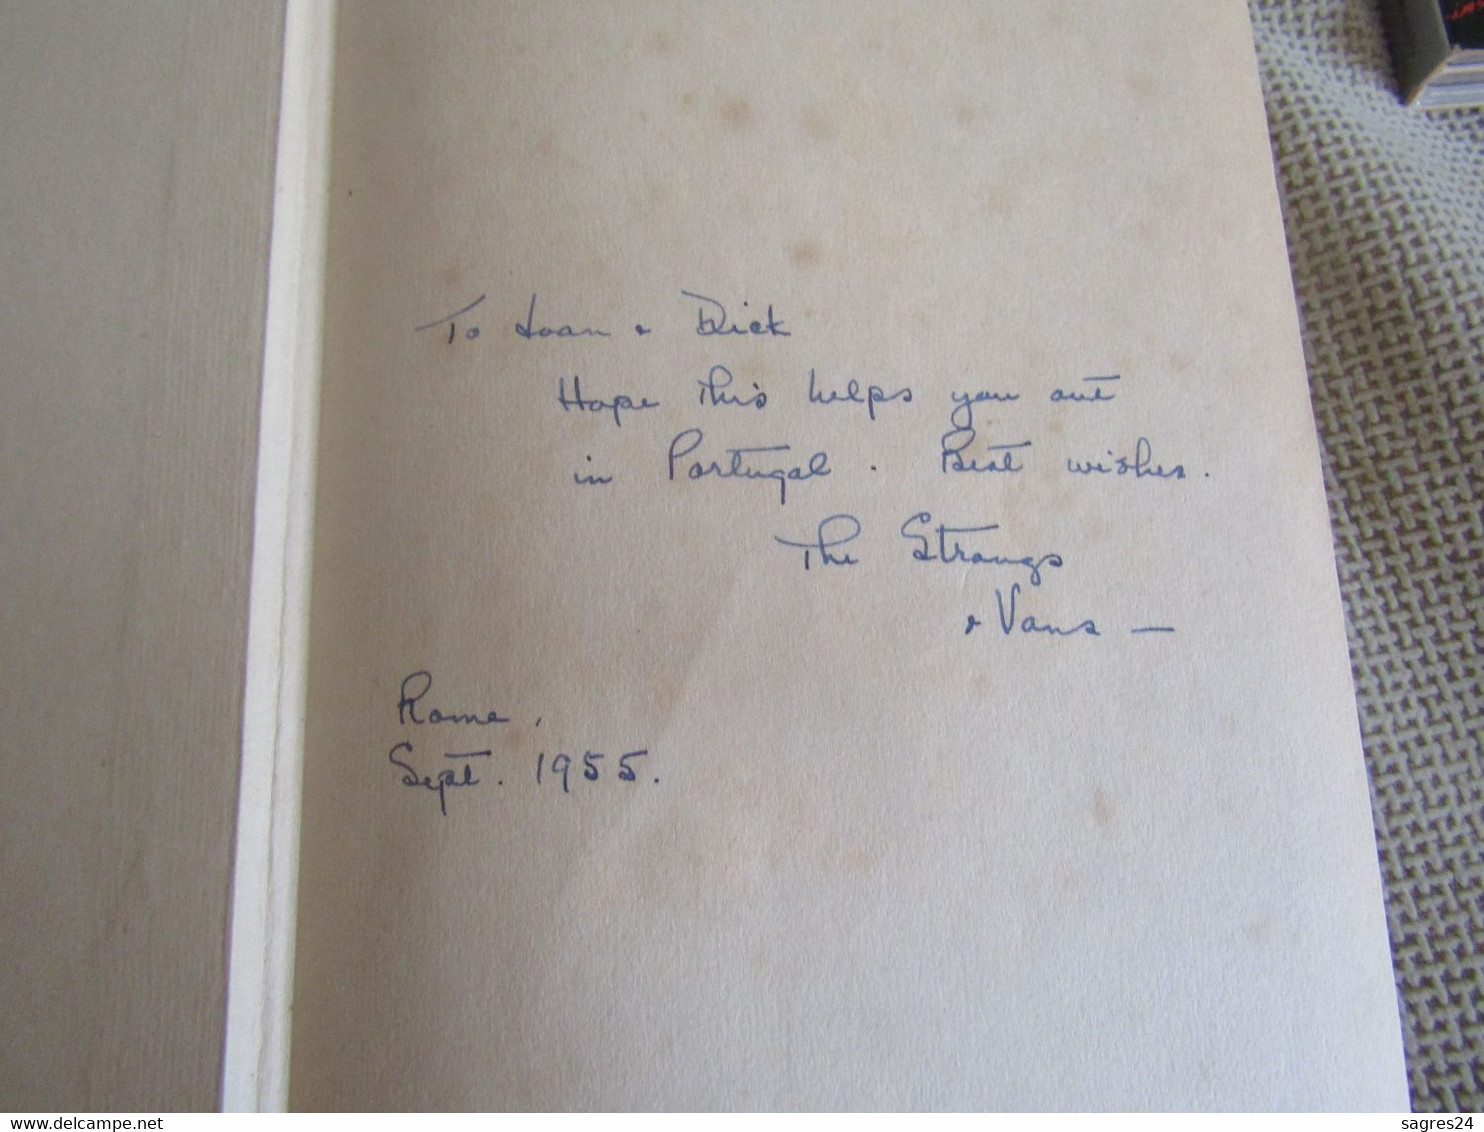 To Joan & Dick
Hope this helps you out
in Portugal. Best wishes.
The Strongs
& Vans —
Rome,
Sept. 1955.
www.delcampe.net
sagres24